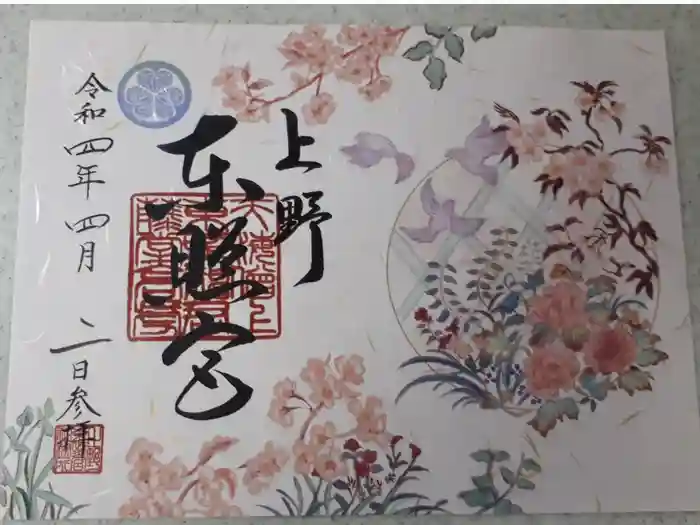 上野
东照宮
令和四年四月二日参拝